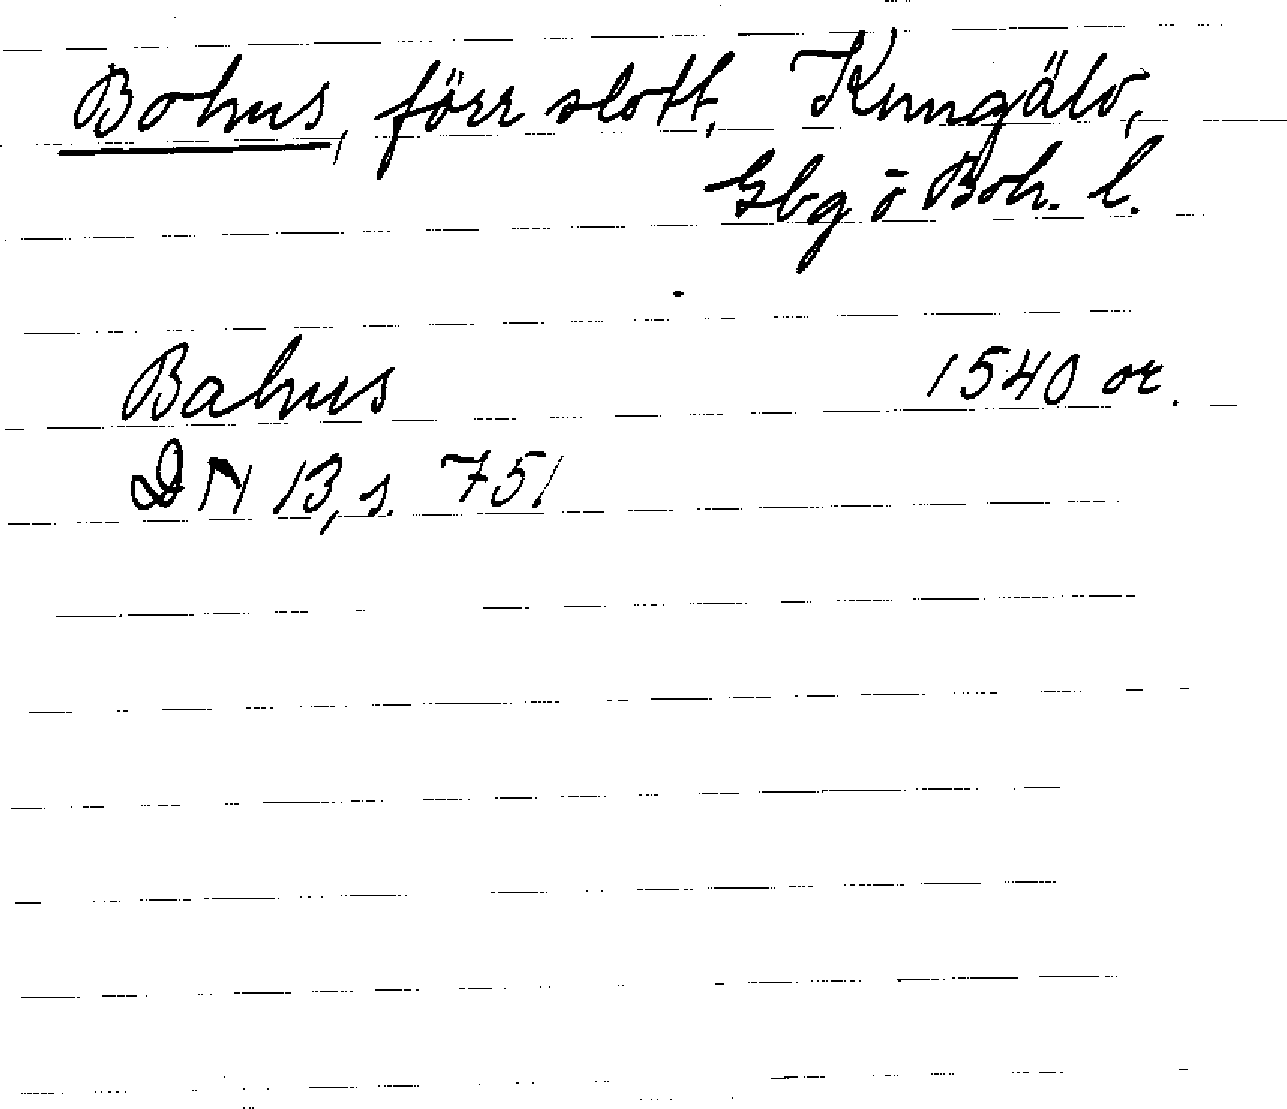 Bohus, förr slott, Kungälv,
Gbg o Boh. l.
Bahus 1540 or.
DN 13, s. 751